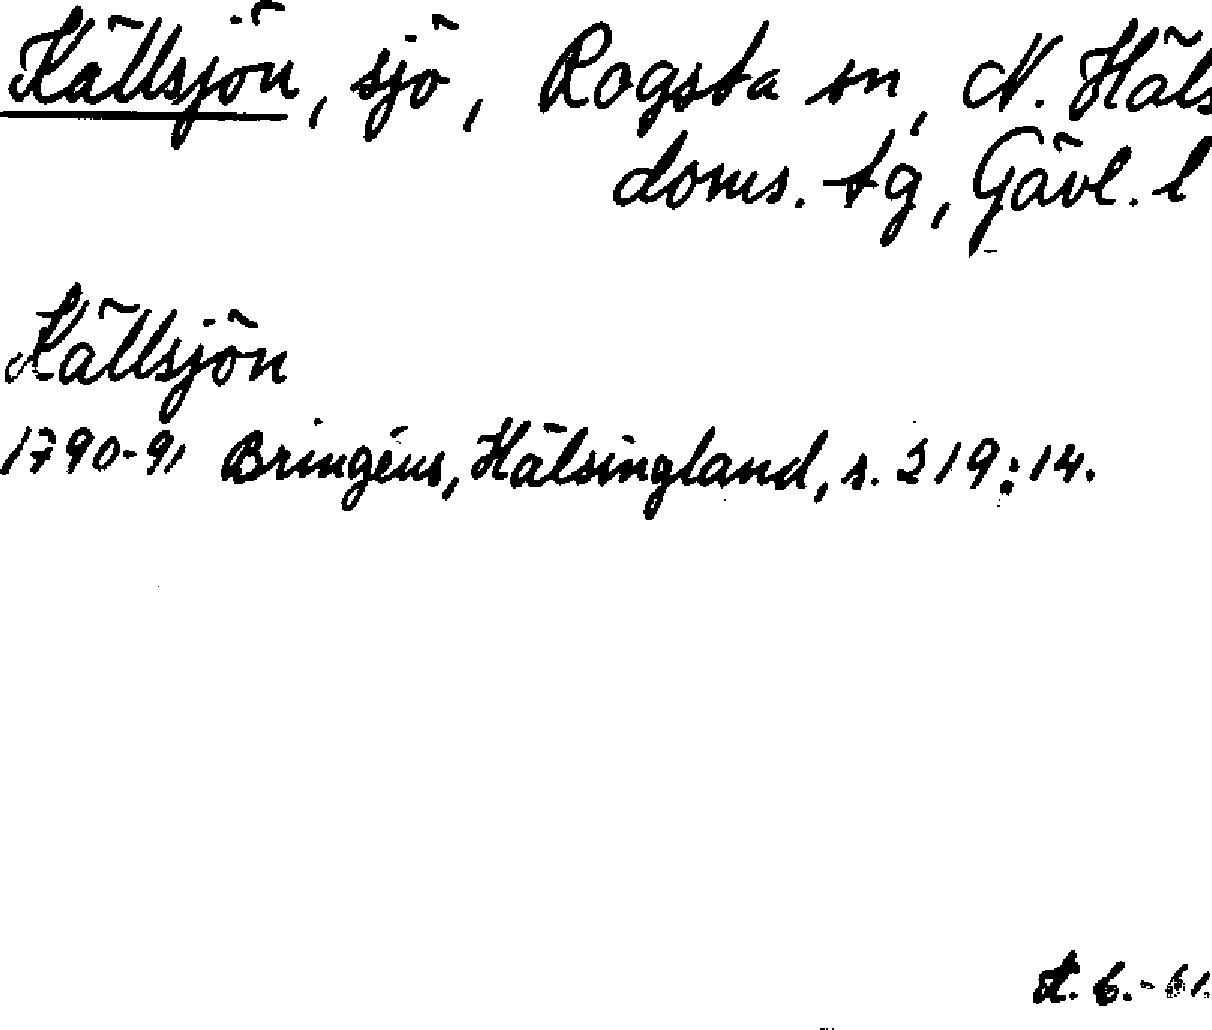 Källsjön, sjö, Rogsta sn, N. Häls
doms. tg, Gävl. l
Källsjön
1790-91 Bringéus, Hälsingland, s. 219:14.